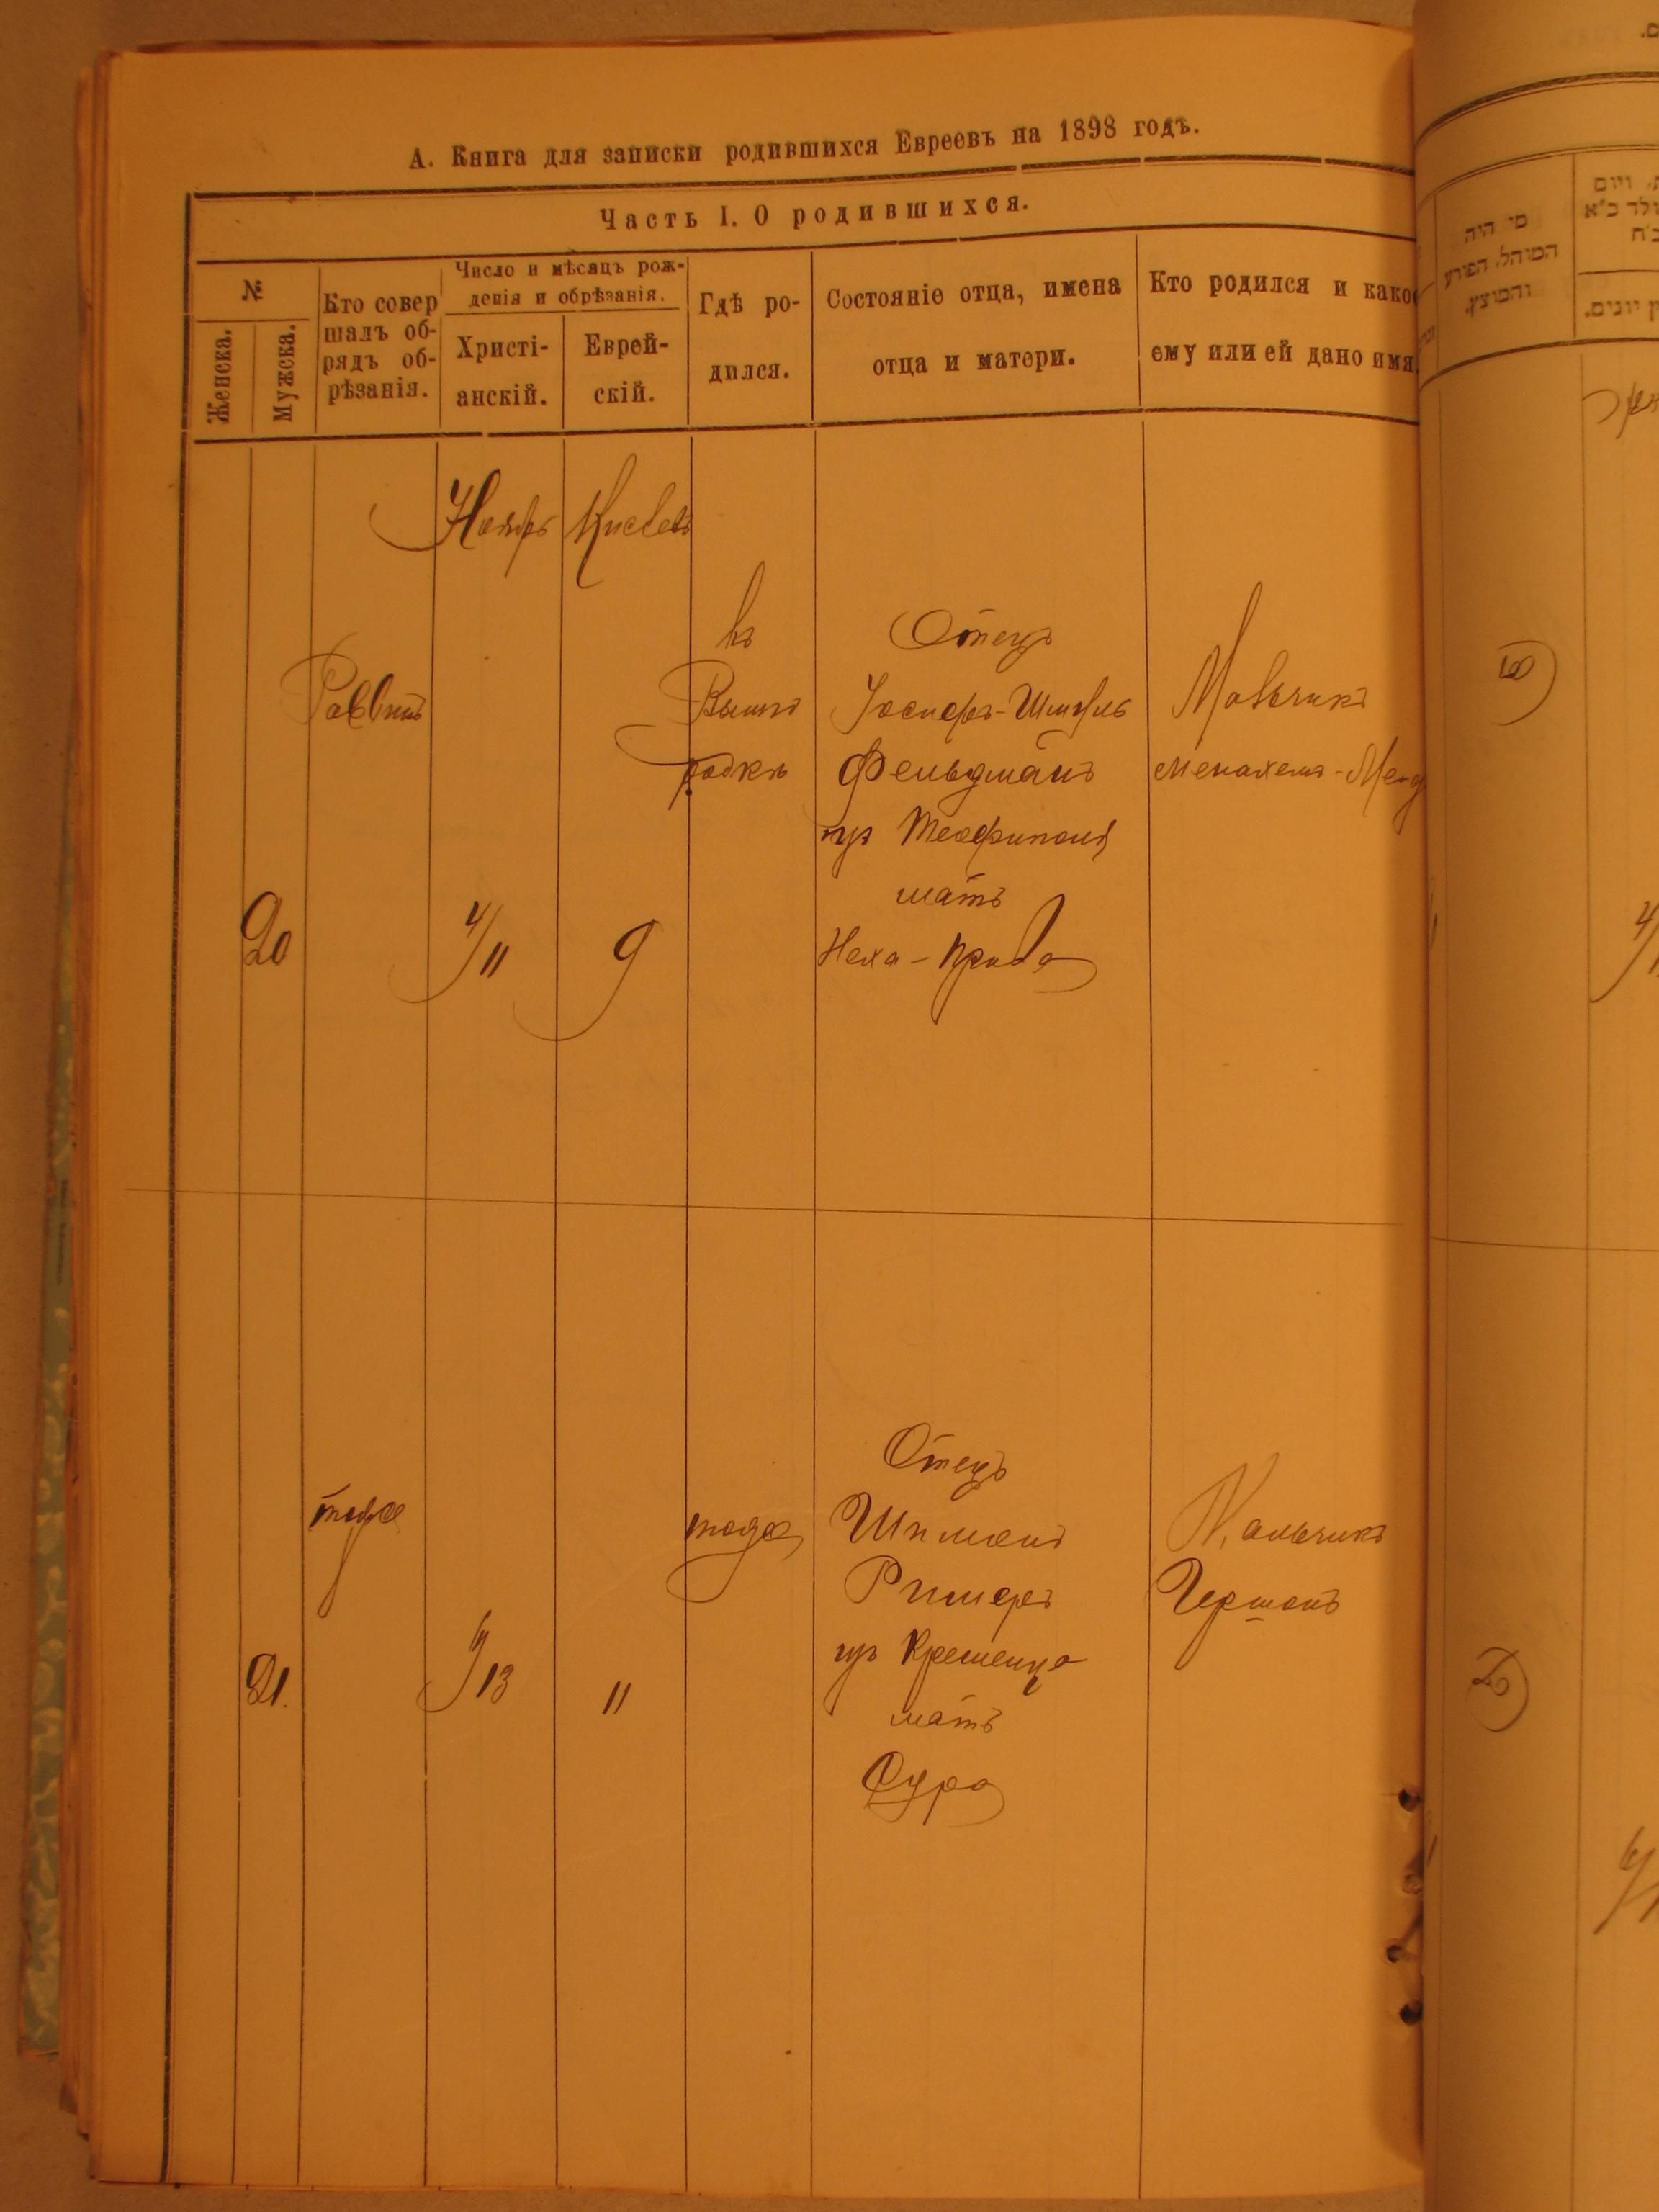 А. Книга для записки родившихся Евреевъ на 1898 годъ.
Часть I. О родившихся.
№
Женска.
Мужска.
Кто совер
шалъ об-
рядъ об-
рѣзанія.
Число и мѣсяцъ рож-
денія и обрѣзанія.
Христі-
анскій.
Еврей-
скій.
Гдѣ ро-
дился.
Состояніе отца, имена
отца и матери.
Кто родился и како
ему или ей дано имя
Ноябрь
Кислевъ
20
Раввинъ
4/11
9
въ
Вышго
родкѣ
Отецъ
Іосифъ-Шмуль
Фельдманъ
изъ Теофиполя
мать
Неха-
Мальчикъ
Менахемъ-Менд
21.
тоже
6/13
11
тоже
Отецъ
Шимонъ
изъ Кременца
мать
Сура
Мальчикъ
Гершонъ
מי היה
המוהל, הפורע
והמוצץ.
ויום